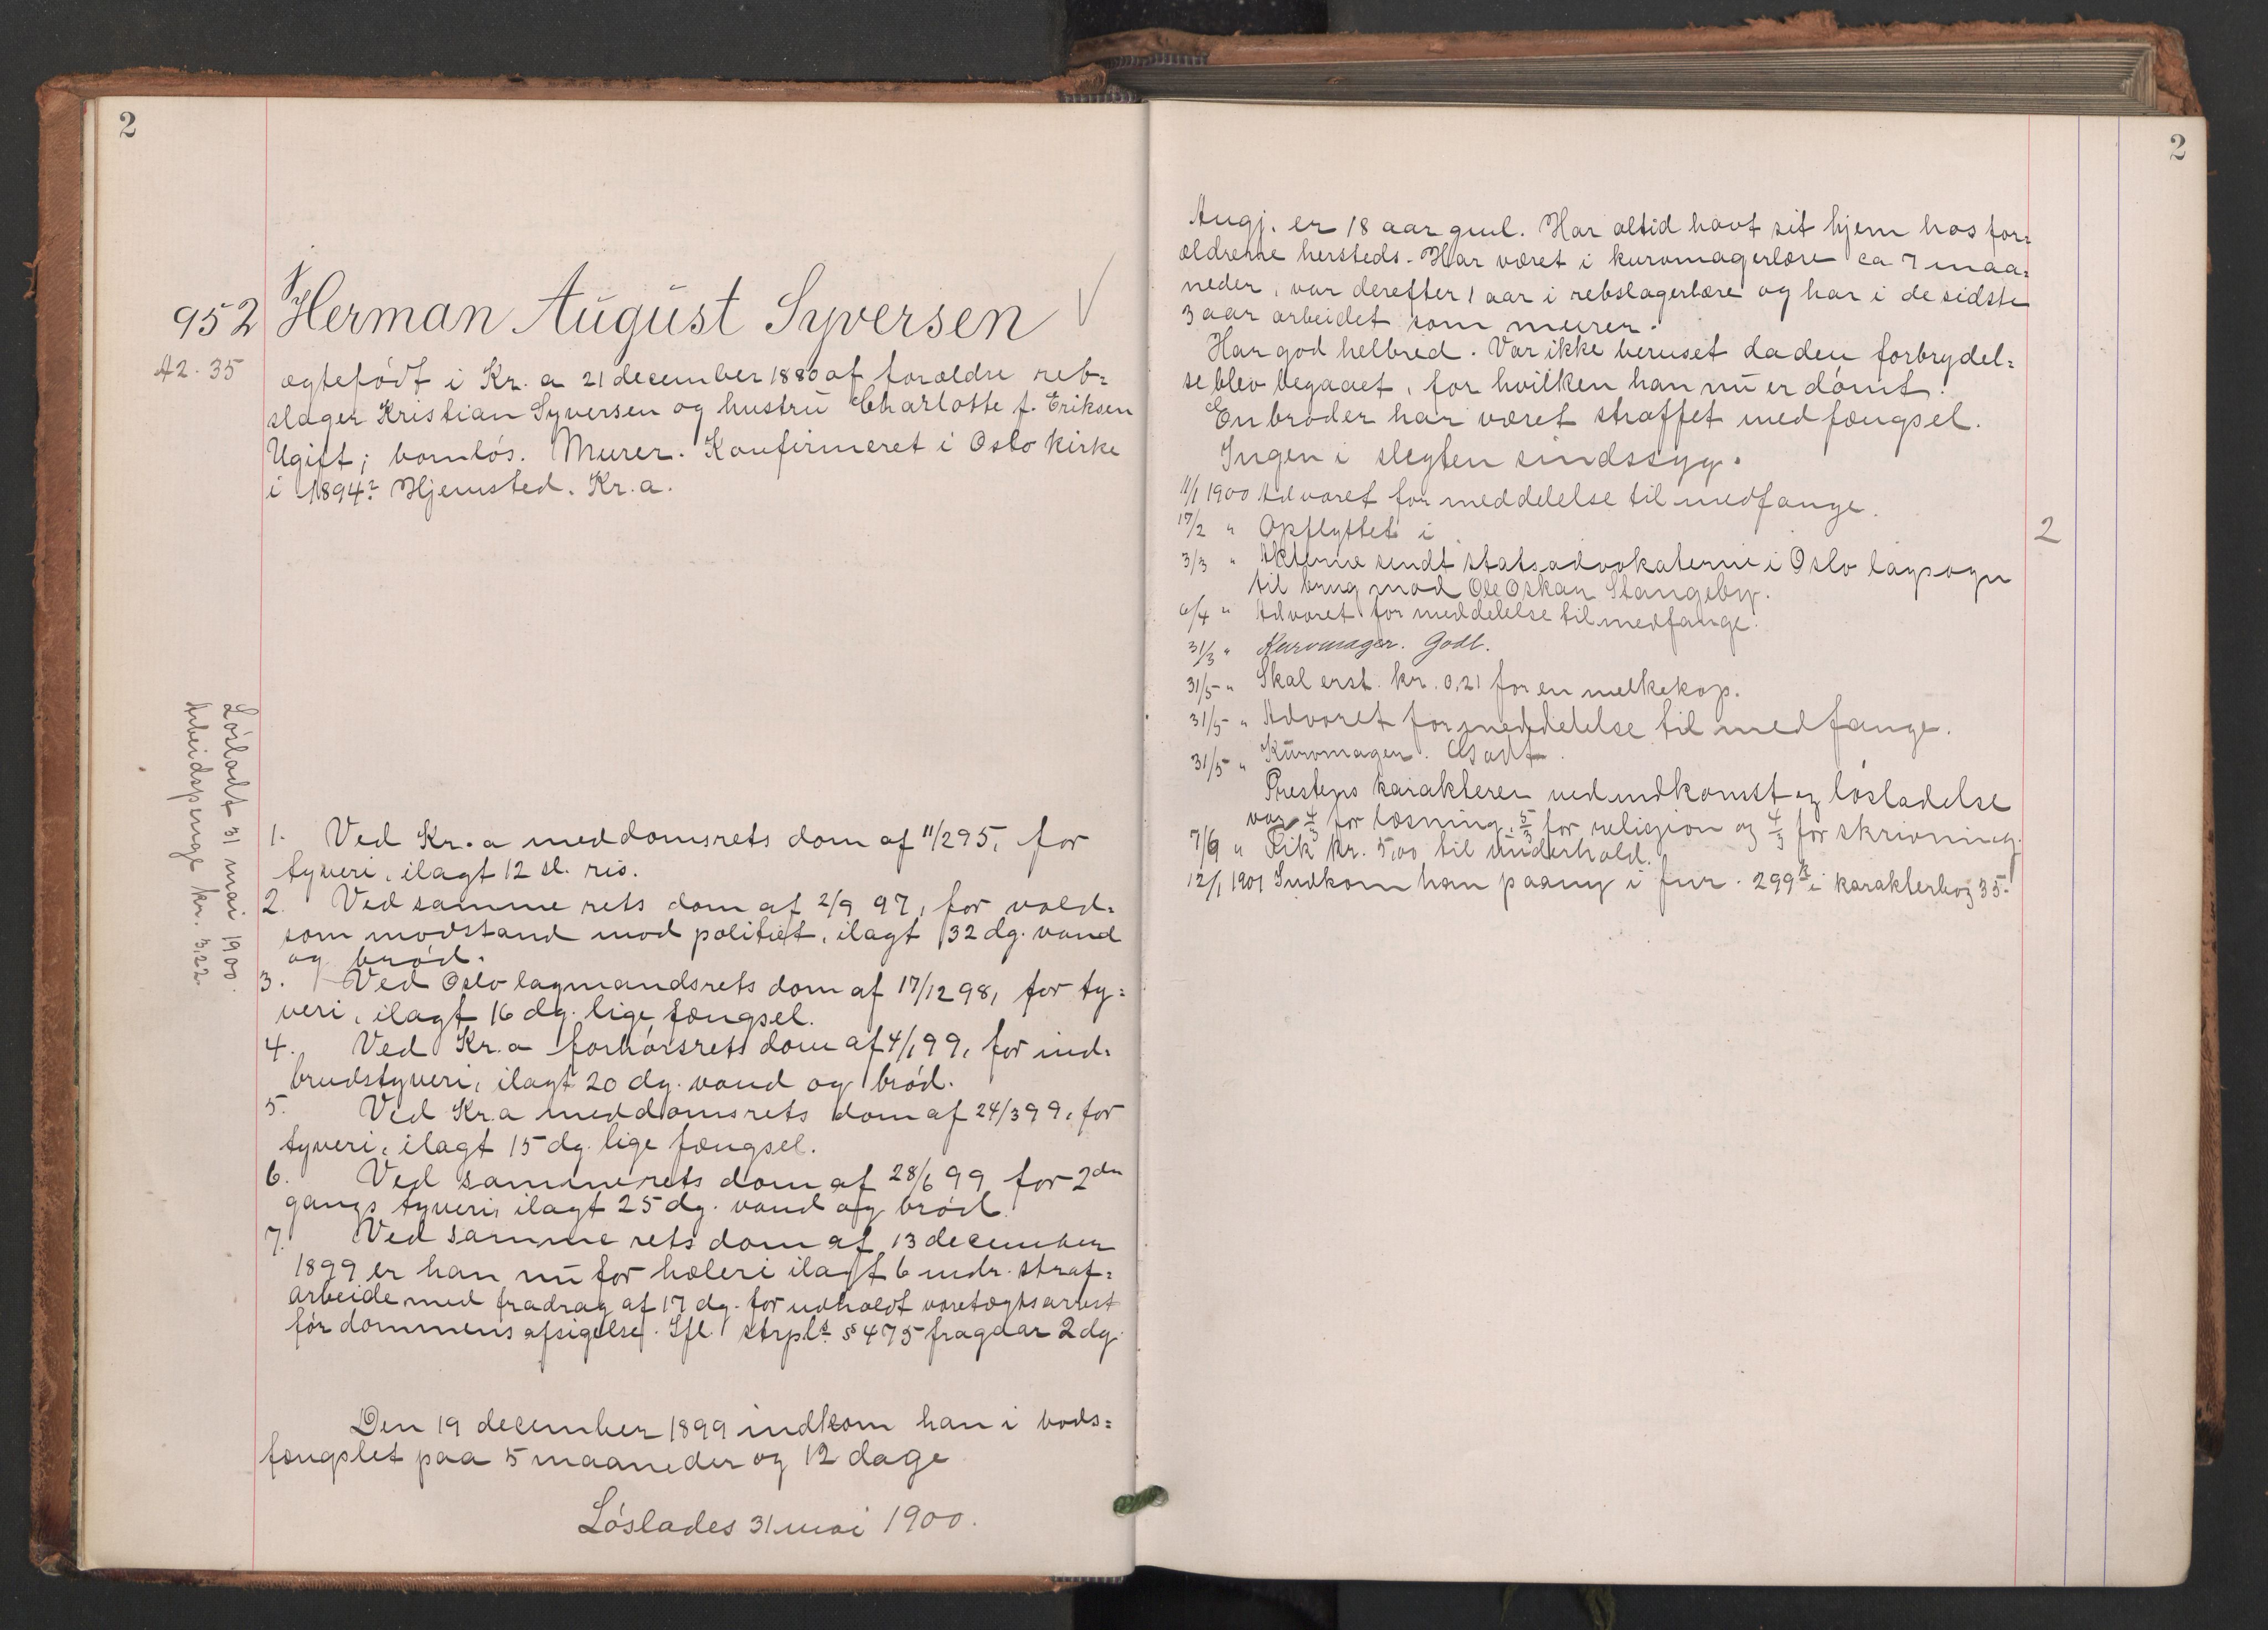 2
952 Herman August Syversen
A2. 35
ægtefödt i Kr.a 21 december 1880 af forældre reb=
slager Kristian Syversen og hustru Charlotte f. Eriksen
Ugift; barnlös. Murer. Konfirmeret i Oslo kirke
i 1894? Hjemsted. Kr.a.
Lösladt 31 mai 1900.
Arbeidspenge kr. 3,22
1. Ved Kr.a meddomsrets dom af 11/2 95, for
tyveri, ilagt 12 sl. ris.
2. Ved samme rets dom af 2/9 97, for vold=
som modstand mod politiet, ilagt 32 dg. vand
og bröd.
3. Ved Oslo lagmandsrets dom af 17/12 98, for ty=
veri, ilagt 16 dg. lige fængsel.
4. Ved Kr.a forhörsrets dom af 4/1 99, for ind=
brudstyveri, ilagt 20 dg. vand og bröd.
5. Ved Kr.a meddomsrets dom af 24/3 99, for
tyveri, ilagt 15 dg. lige fængsel.
6. Ved samme rets dom af 28/6 99 for 2den
gangs tyveri, ilagt 25 dg. vand og bröd.
7. Ved samme rets dom af 13 december
1899 er han nu for hæleri ilagt 6 mdr. straf=
arbeide med fradrag af 17 dg. for udholdt varetægtsarrest
för dommens afsigelse. Ifl. strpls § 475 fragaar 2 dg.
Den 19 december 1899 indkom han i bods=
fængslet paa 5 maaneder og 12 dage
Löslades 31 mai 1900.
2
Angj. er 18 aar gml. Har altid havt sit hjem hos for=
ældrene hersteds. Har været i kurvmagerlære ca 7 maa=
neder, var derefter 1 aar i rebslagerlære og har i de sidste
3 aar arbeidet som murer.
Har god helbred. Var ikke beruset da den forbrydel=
se blev begaaet, for hvilken han nu er dömt.
En broder har været straffet med fængsel.
Ingen i slegten sindssyg.
11/1 1900 Advaret for meddelelse til medfange.
17/2 " Opflyttet i 2
3/3 " Akterne sendt statsadvokaterne i Oslo lagsogn
til brug mod Ole Oskar Stangeby.
6/4 " Advaret for meddelelse til medfange.
31/3 " Kurvmager. Godt.
31/5 " Skal erst. kr. 0,21 for en melkekop.
31/5 " Advaret for meddelelse til medfange.
31/5 " Kurvmager. Godt.
Prestens karakterer ved indkomst og lösladelse
var 4/3 for læsning, 5/3 for religion og 4/3 for skrivning.
7/6 " Fik kr. 5,00 til underhold.
12/1 1901 Indkom han paany i fnr. 299 B i karakterbog 35.